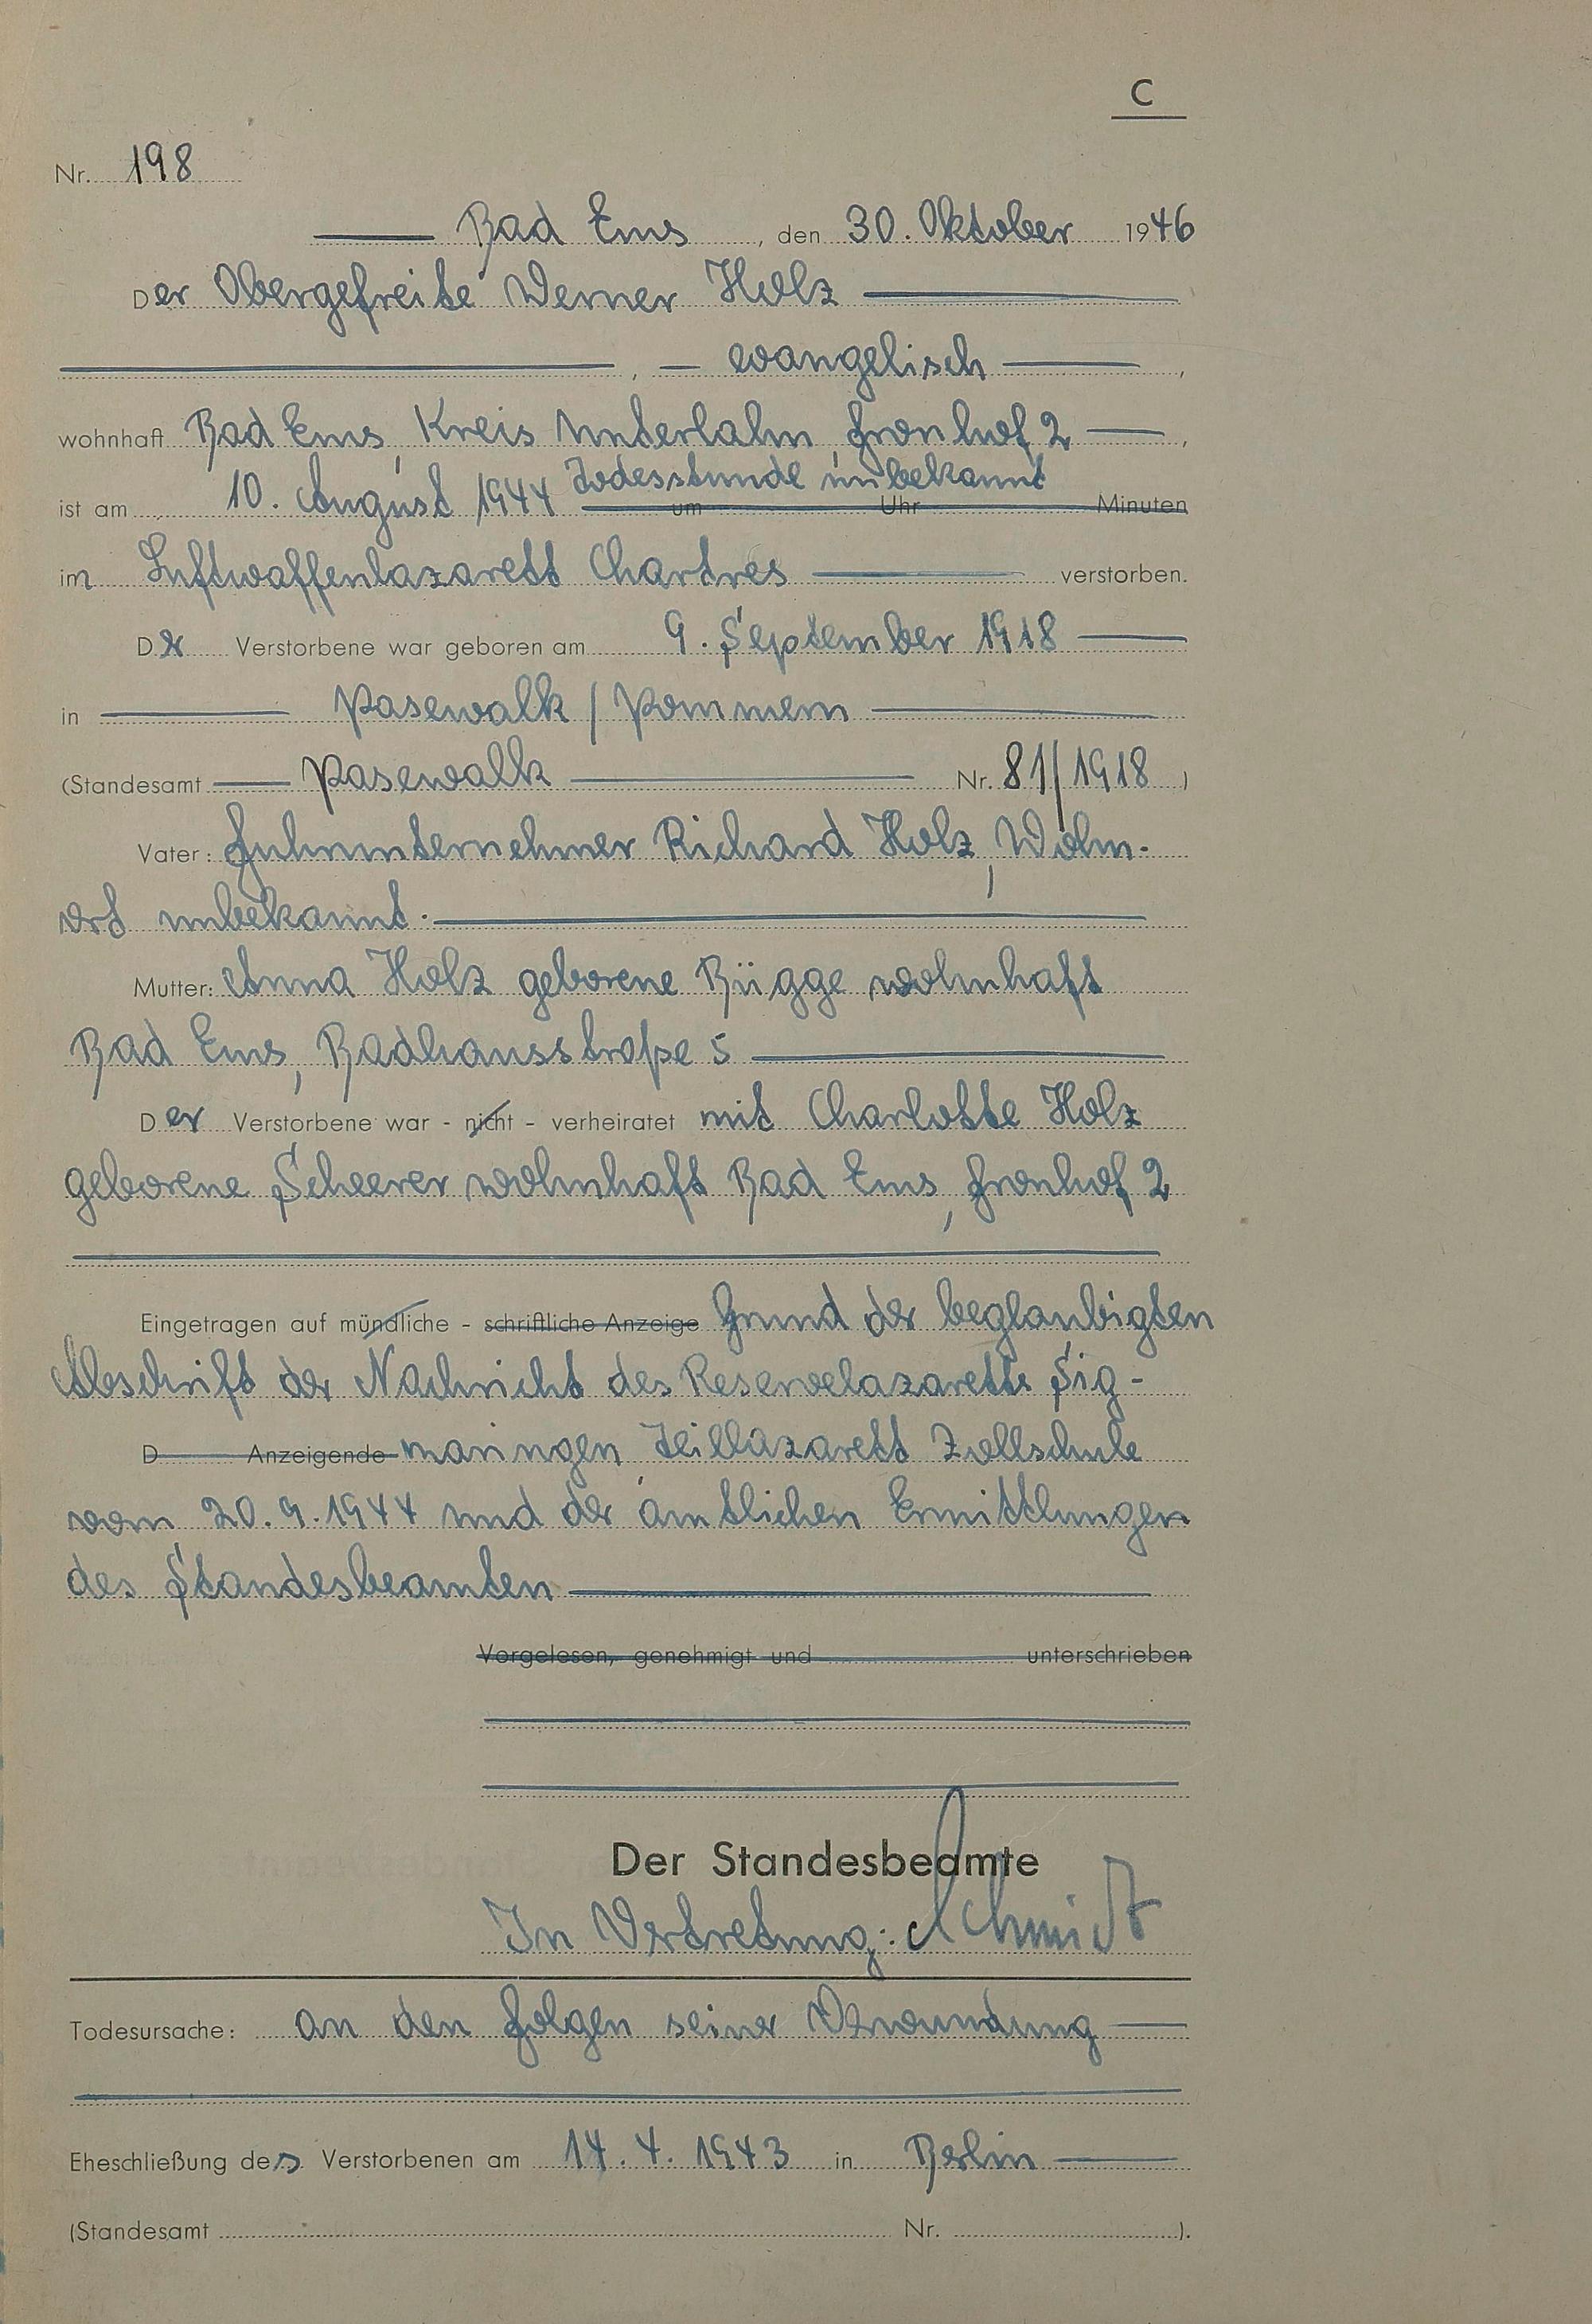 C
Nr. 198
Bad Ems, den 30. Oktober 1946
Der Obergefreite Werner Holz
, - evangelisch ,
wohnhaft Bad Ems, Kreis Unterlahn, Fronhof 2 ,
Todesstunde unbekannt
ist am 10. August 1944 um Uhr Minuten
im Luftwaffenlazarett Chartres verstorben.
Der Verstorbene war geboren am 9. September 1918
in Pasewalk / Pommern
(Standesamt Pasewalk Nr. 81/1918 )
Vater: Fuhrunternehmer Richard Holz, Wohn-
ort unbekannt.
Mutter: Anna Holz geborene Bügge wohnhaft
Bad Ems, Badhausstraße 5
Der Verstorbene war - nicht - verheiratet mit Charlotte Holz
geborene Scheerer wohnhaft Bad Ems, Fronhof 2
Eingetragen auf mündliche - schriftliche Anzeige Grund der beglaubigten
Abschrift der Nachricht des Reservelazaretts Sig-
D Anzeigende maringen, Teillazarett Zollschule
vom 20.9.1944 und der amtlichen Ermittlungen
des Standesbeamten
Vorgelesen, genehmigt und unterschrieben
Der Standesbeamte
In Vertretung: Schmidt
Todesursache: an den Folgen seiner Verwundung
Eheschließung des Verstorbenen am 14.4.1943 in Berlin
(Standesamt Nr. ).